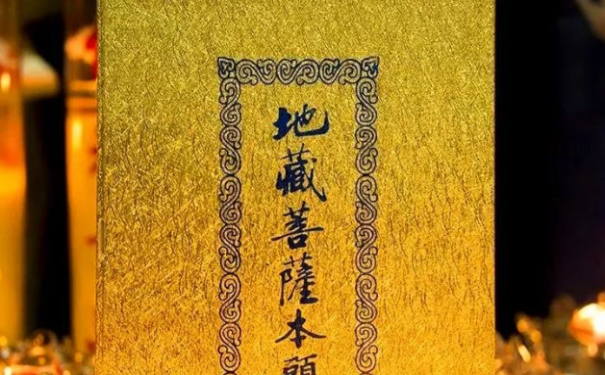 地藏菩薩本